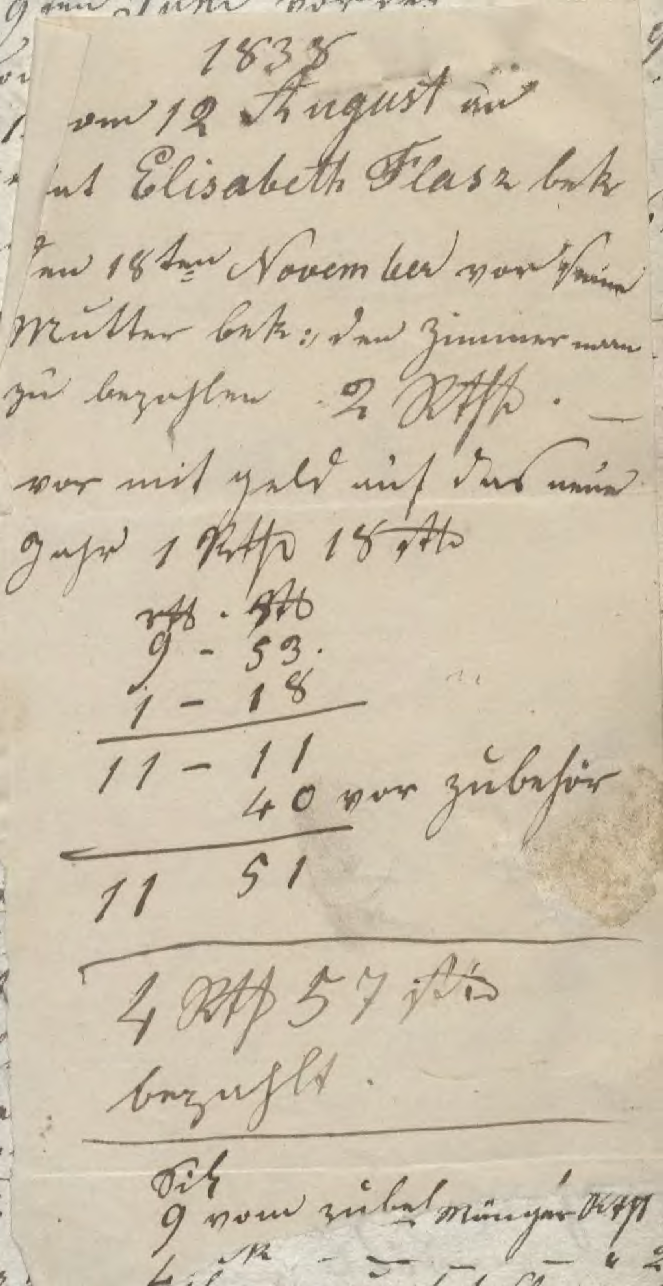 1838
vom 12 August an
hat Elisabeth Flasz bek
den 18ten November vor seine
Mutter bek: den Zimmerman
zu bezahlen 2 Rthl. —
vor mit geld auf das neue
Jahr 1 Rthl 18 stb
rth . stb
9 - 53.
1 - 18
11 - 11
40 vor zubehör
11 51
4 Rth 57 stb
bezahlt.
9 vom